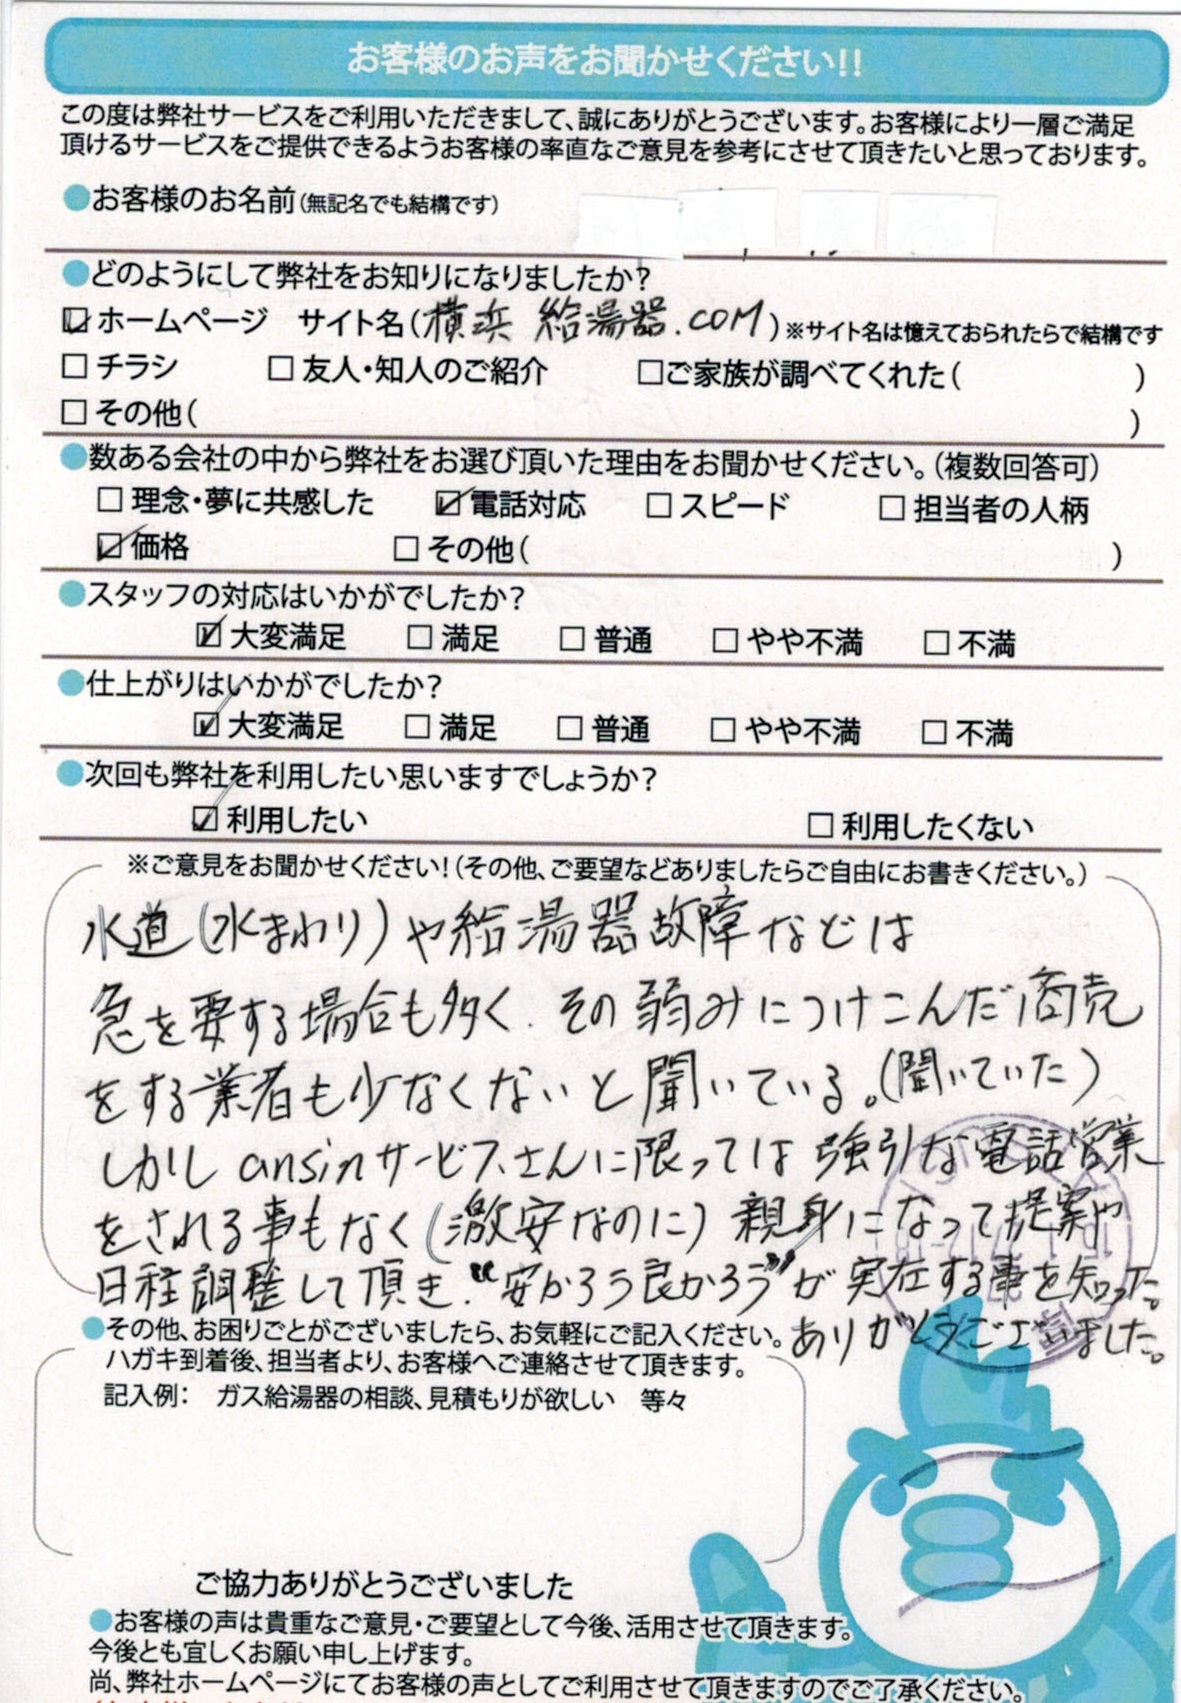 お客様のお声をお聞かせください!!
この度は弊社サービスをご利用いただきまして、誠にありがとうございます。お客様により一層ご満足
頂けるサービスをご提供できるようお客様の率直なご意見を参考にさせて頂きたいと思っております。
●お客様のお名前(無記名でも結構です)
●どのようにして弊社をお知りになりましたか?
☑ホームページ サイト名(横浜 給湯器.COM)※サイト名は憶えておられたらで結構です
□チラシ □友人・知人のご紹介 □ご家族が調べてくれた( )
□その他( )
●数ある会社の中から弊社をお選び頂いた理由をお聞かせください。(複数回答可)
□理念・夢に共感した ☑電話対応 □スピード □担当者の人柄
☑価格 □その他( )
●スタッフの対応はいかがでしたか?
☑大変満足 □満足 □普通 □やや不満 □不満
●仕上がりはいかがでしたか?
☑大変満足 □満足 □普通 □やや不満 □不満
●次回も弊社を利用したい思いますでしょうか?
☑利用したい □利用したくない
※ご意見をお聞かせください!(その他、ご要望などありましたらご自由にお書きください。)
水道(水まわり)や給湯器故障などは
急を要する場合も多く、その弱みにつけこんだ商売
をする業者も少なくないと聞いている。(聞いていた)
しかし ansinサービスさんに限っては強引な電話営業
をされる事もなく(激安なのに)親身になって提案や
日程調整して頂き、“安かろう良かろう”が実在する事を知った。
ありがとうございました。
●その他、お困りごとがございましたら、お気軽にご記入ください。
ハガキ到着後、担当者より、お客様へご連絡させて頂きます。
記入例: ガス給湯器の相談、見積もりが欲しい 等々
ご協力ありがとうございました
●お客様の声は貴重なご意見・ご要望として今後、活用させて頂きます。
今後とも宜しくお願い申し上げます。
尚、弊社ホームページにてお客様の声としてご利用させて頂きますのでご了承ください。